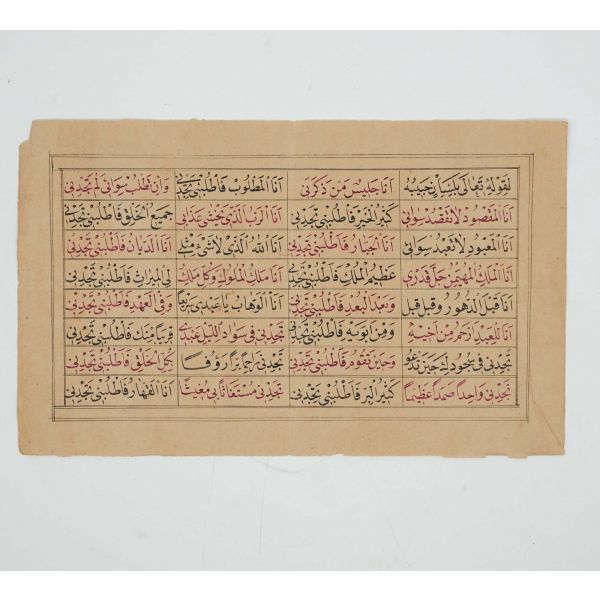 لقوله تعالى بلسان نجيبه انا جليس من ذكرني انا المطلوب فاطلبني تجدني وان تطلب سوائي لم تجدني
انا المقصود لا تقصد سوائي كثير الخير فاطلبني تجدني انا الرب الذي يخشى عذابي جميع الخلق فاطلبني تجدني
انا المعبود لا تعبد سوائي انا الجبار فاطلبني تجدني انا الله الذي لا شئ مثلي انا الديان فاطلبني تجدني
انا الملك المهيمن جل قدري عظيم الملك فاطلبني تجدني انا ملك الملوك وكل ملك لي الميراث فاطلبني تجدني
انا قبل الدهور وقبل قبل وبعد البعد فاطلبني تجدني انا الوهاب يا عبدي سريعا وفي العهد فاطلبني تجدني
انا للعبد ارحم من اخيه ومن ابويه فاطلبني تجدني تجدني في سواد الليل عبدي قريبا منك فاطلبني تجدني
تجدني في سجودك حين تدعو وحين تقوم فاطلبني تجدني تجدني راحما برا رؤفا بكل الخلق فاطلبني تجدني
تجدني واحدا صمدا عظيما كثير البر فاطلبني تجدني تجدني مستغاثا بي مغيثا انا القهار فاطلبني تجدني